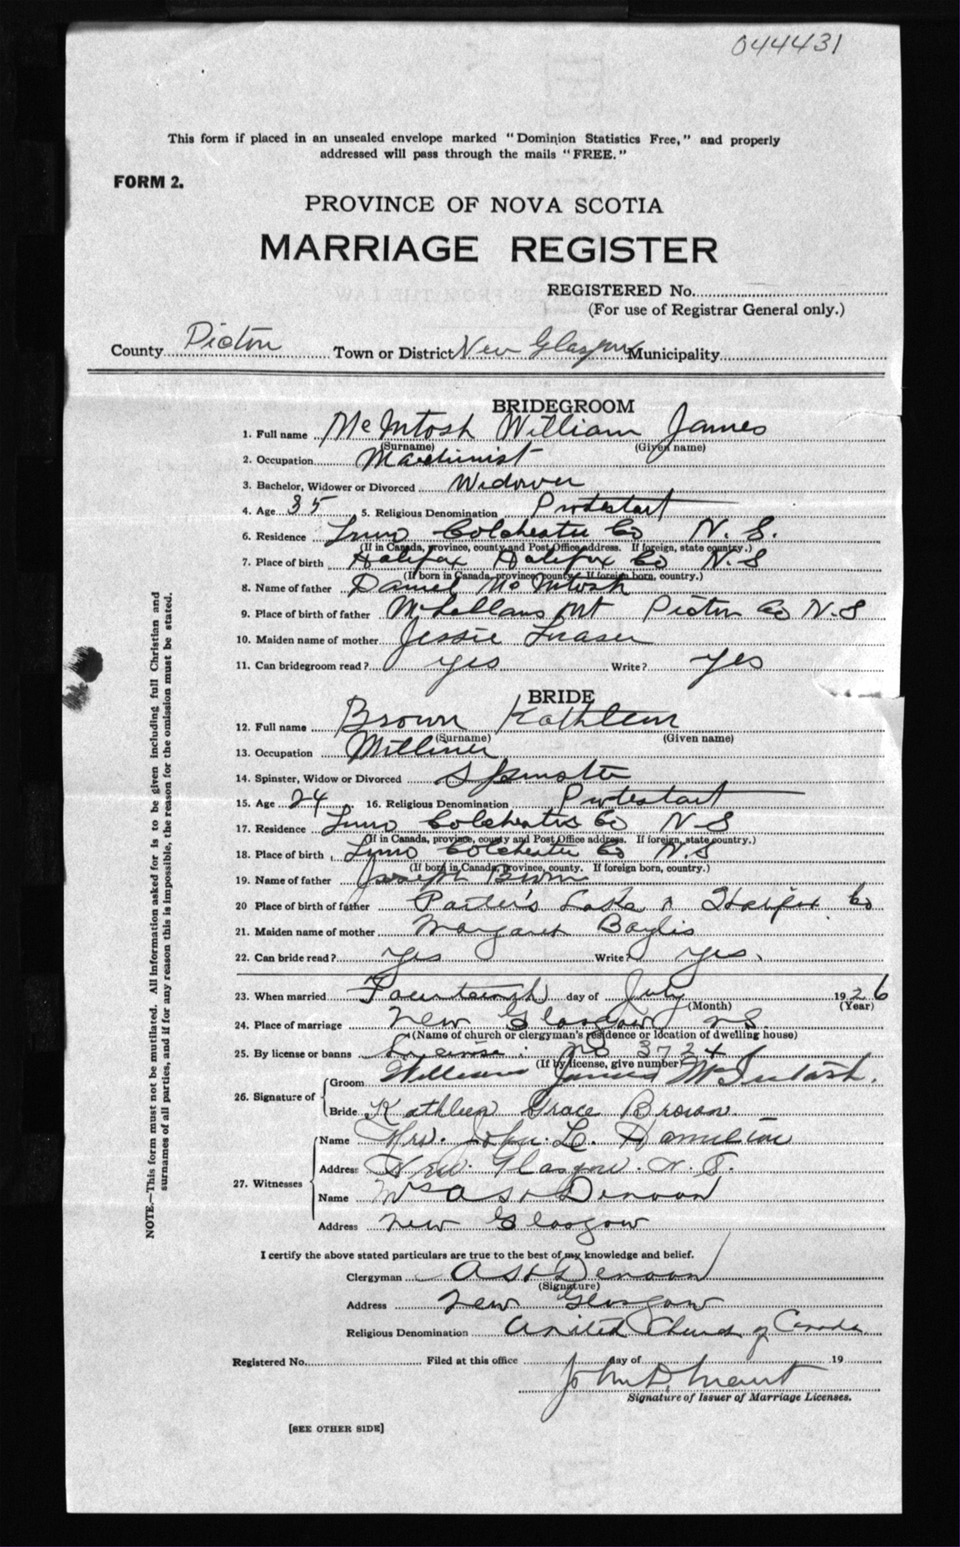 044431
This form if placed in an unsealed envelope marked "Dominion Statistics Free," and properly
addressed will pass through the mails "FREE."
FORM 2.
PROVINCE OF NOVA SCOTIA
MARRIAGE REGISTER
REGISTERED No.
(For use of Registrar General only.)
County Pictou Town or District New Glasgow Municipality
BRIDEGROOM
1. Full name McIntosh William James
(Surname) (Given name)
2. Occupation Machinist
3. Bachelor, Widower or Divorced Widower
4. Age 35 5. Religious Denomination Protestant
6. Residence Truro Colchester Co N. S.
(If in Canada, province, county and Post Office address. If foreign, state country.)
7. Place of birth Halifax Halifax Co N. S
(If born in Canada, province, county. If foreign born, country.)
8. Name of father Daniel McIntosh
9. Place of birth of father McLellans Mt Pictou Co N. S
10. Maiden name of mother Jessie Fraser
11. Can bridegroom read? yes Write? yes
BRIDE
12. Full name Brown Kathleen
(Surname) (Given name)
13. Occupation Milliner
14. Spinster, Widow or Divorced Spinster
15. Age 24 16. Religious Denomination Protestant
17. Residence Truro Colchester Co N S
(If in Canada, province, county and Post Office address. If foreign, state country.)
18. Place of birth Truro Colchester Co N. S
(If born in Canada, province, county. If foreign born, country.)
19. Name of father Joseph Brown
20 Place of birth of father Porter's Lake Halifax Co
21. Maiden name of mother Margaret Baylis
22. Can bride read? yes Write? yes.
23. When married Fourteenth day of July 1926
(Month) (Year)
24. Place of marriage New Glasgow N S.
(Name of church or clergyman's residence or location of dwelling house)
25. By license or banns License: no 3724
(If by license, give number)
26. Signature of Groom William James McIntosh.
Bride Kathleen Grace Brown.
27. Witnesses Name Mrs. John L. Hamilton
Address New Glasgow. N. S.
Name Mrs A Denoon
Address New Glasgow
I certify the above stated particulars are true to the best of my knowledge and belief.
Clergyman A Denoon
(Signature)
Address New Glasgow
Religious Denomination United Church of Canada
Registered No. Filed at this office day of 19
John D.
Signature of Issuer of Marriage Licenses.
[SEE OTHER SIDE]
NOTE.—This form must not be mutilated. All information asked for is to be given including full Christian and
surnames of all parties, and if for any reason this is impossible, the reason for the omission must be stated.